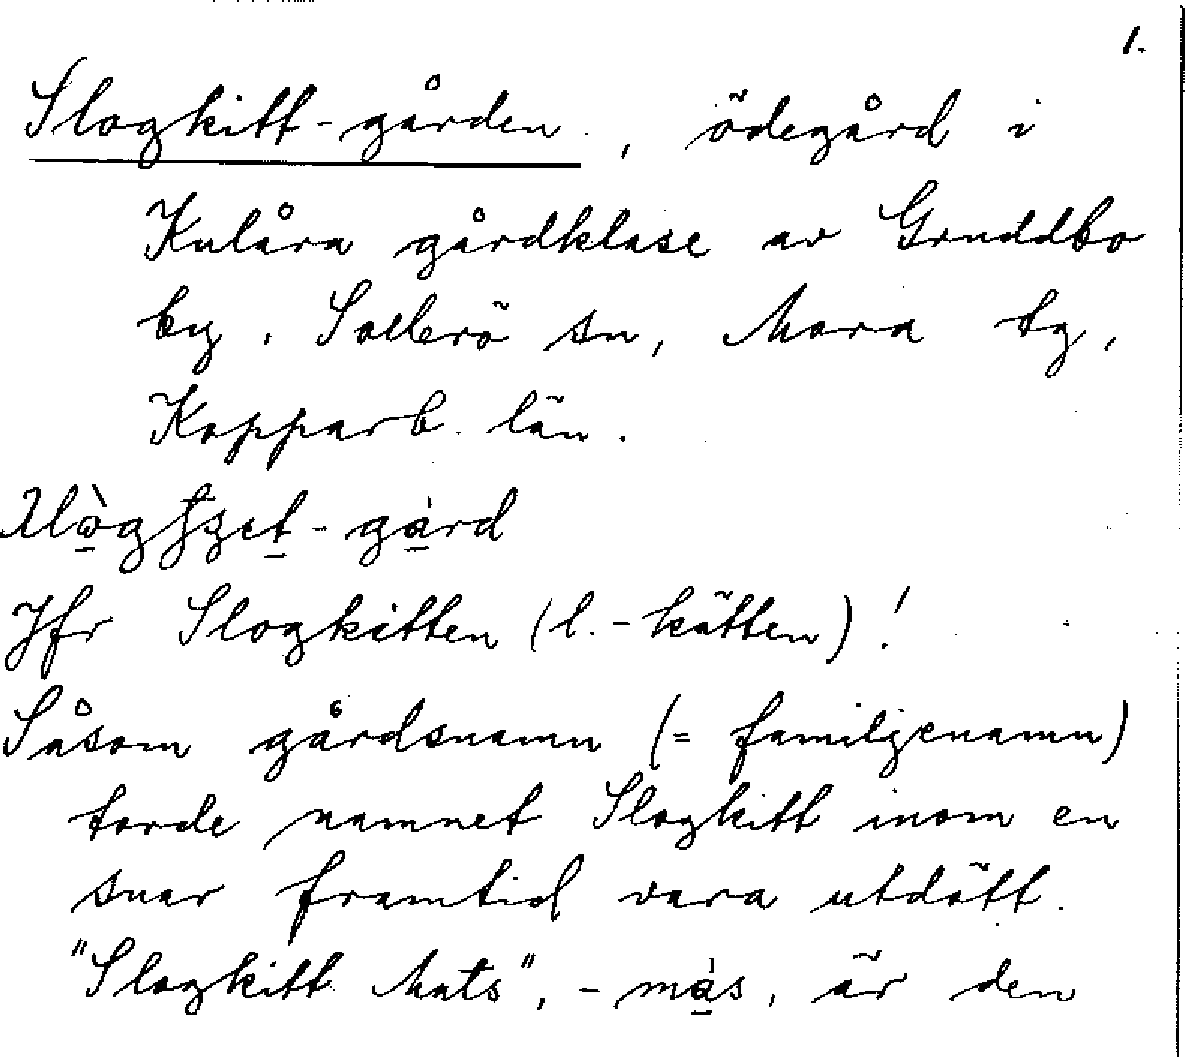 1.
Slogkitt-gården, ödegård i
Kulåra gårdklase av Gruddbo
by, Sollerö sn, Mora tg,
Kopparb. län.
-gård
Jfr Slogkitten (l. -kätten)!
Såsom gårdsnamn (= familjenamn)
torde namnet Slogkitt inom en
snar framtid vara utdött.
"Slogkitt Mats", -màs, är den